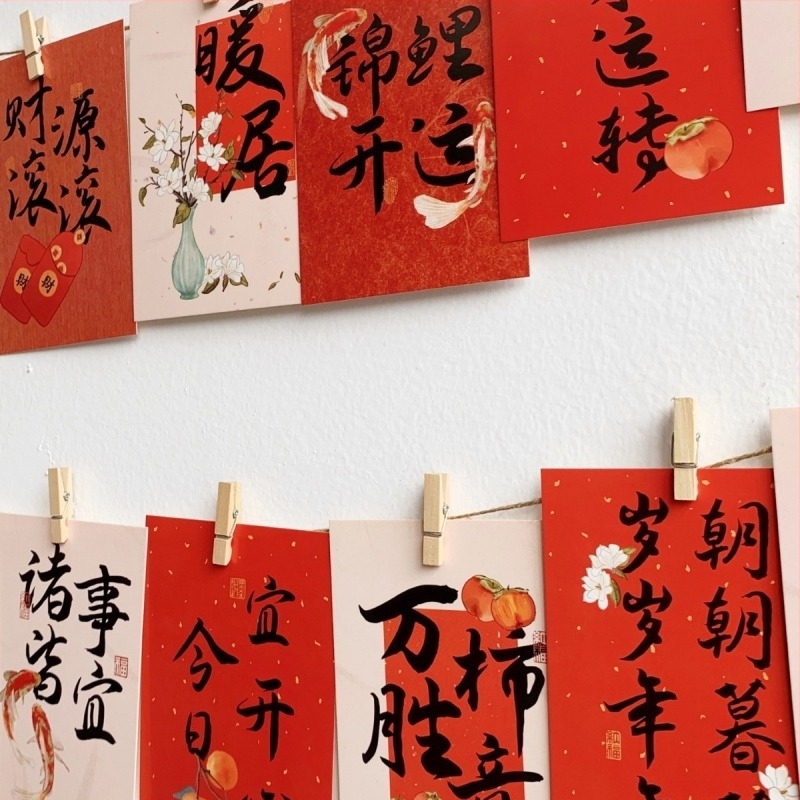 财源
滚滚
暖居
锦鲤
开运
运转
诸事
皆宜
今日
宜开
万柿
胜意
朝朝暮
岁岁年